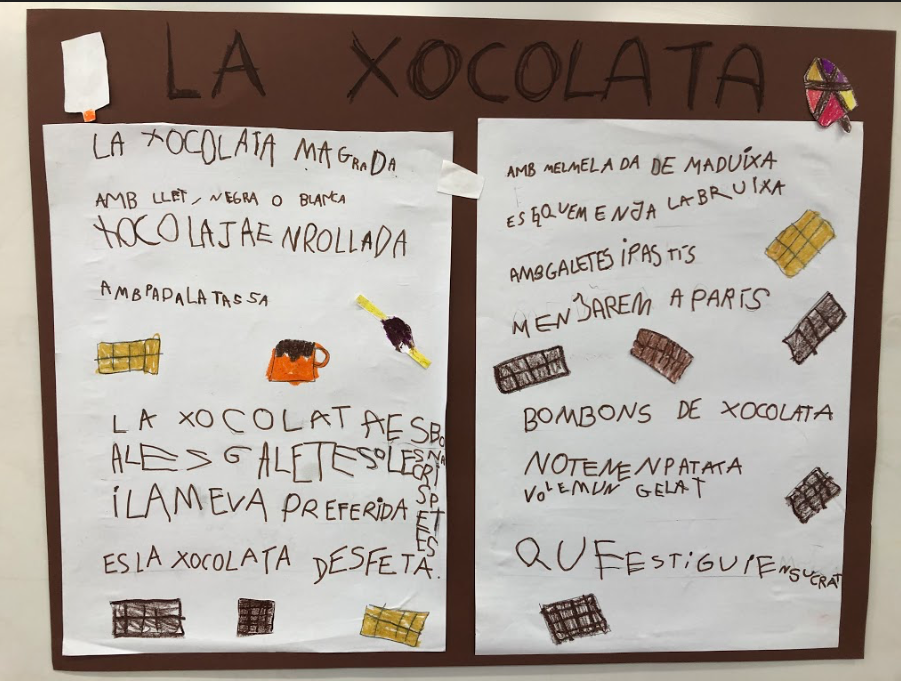 LA XOCOLATA
LA XOCOLATA MAGRADA
AMB LLET, NEGRA O BLANCA
XOCOLATAENROLLADA
AMBPADALATASSA
LA XOCOLATAESBONA
ALESGALETESOLES
iLAMEVA PREFERIDA
ESLA XOCOLATA DESFETA.
AMB MELMELADA DE MADUiXA
ESEQUEMENJA LABRUIXA
AMBGALETESiPASTiS
MENJAREM APARIS
BOMBONS DE XOCOLATA
NOTENENPATATA
VOLEMUN GELAT
QUEESTiGUIENSUCRAT